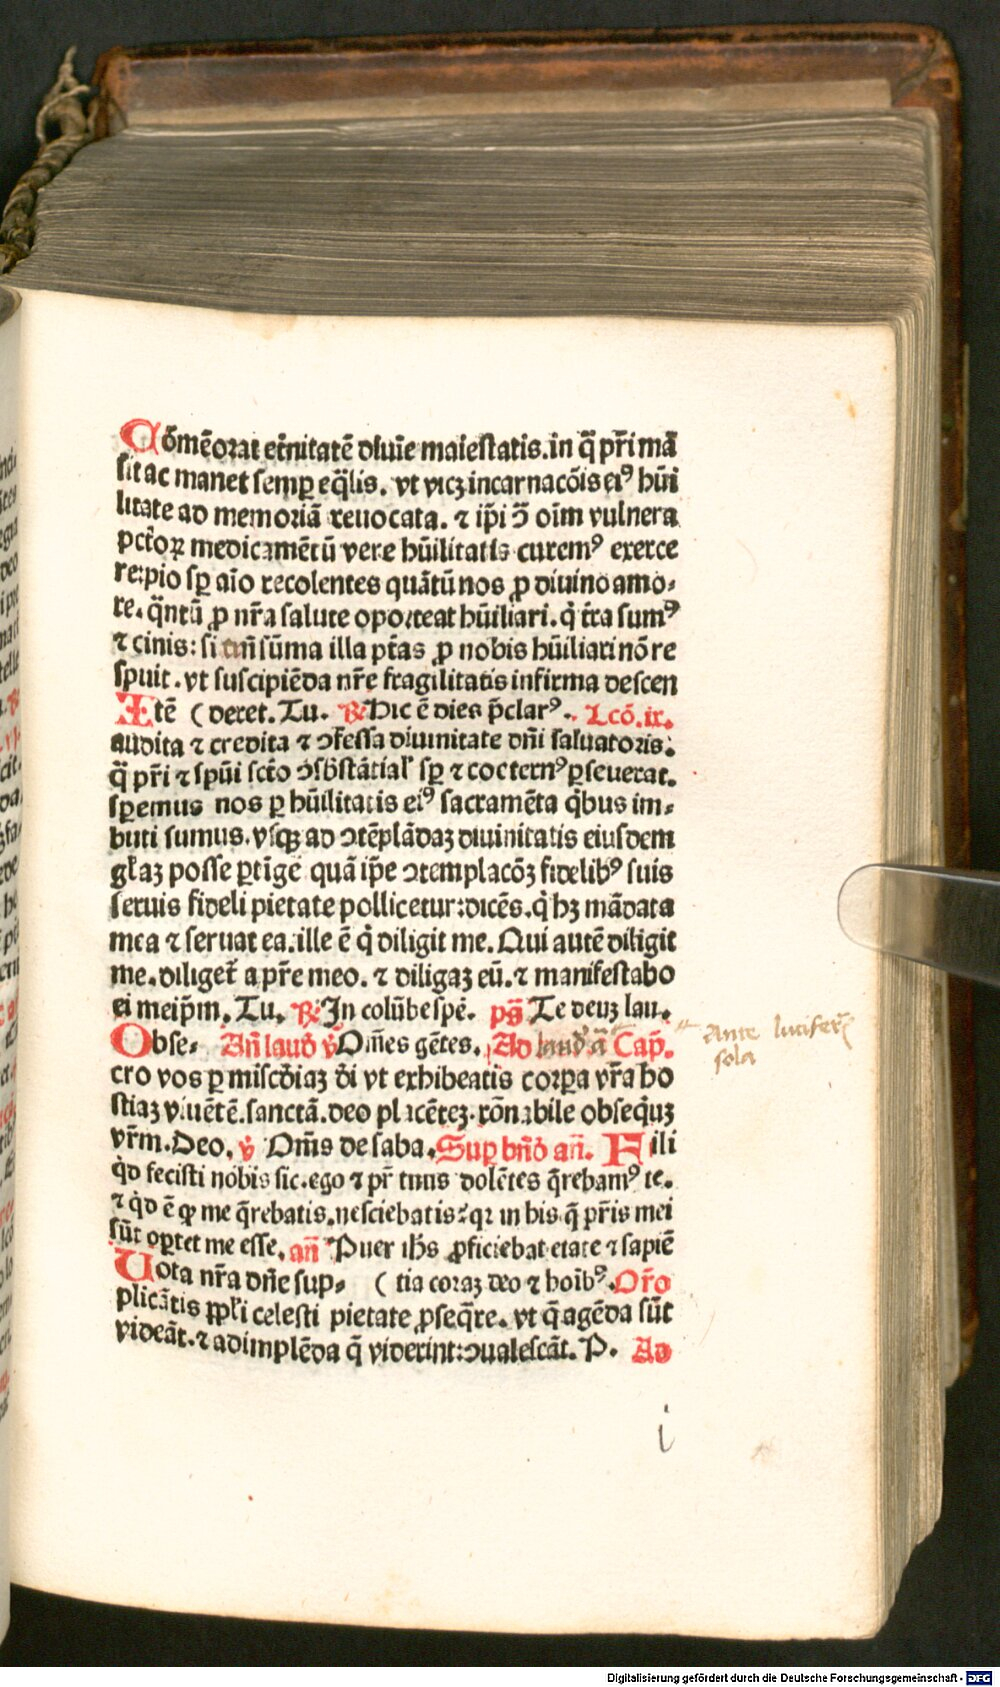 Cōmēorat et̄nitatē diuīe maiestatis. in q̄ pr̄i mā
sit ac manet semꝑ eq̄lis. vt vicꝫ incarnacōis eiꝰ hūi
litate ad memoriā reuocata. ⁊ ip̄i ꝯ̄ oīm vulnera
pctōꝝ medicamētū vere hūilitatis curemꝰ exerce
re: pio sp̄ aīo recolentes quātū nos ꝓ diuino amo⸗
re. q̄ntū ꝓ nr̄a salute oporteat hūiliari. q̇ tr̄a sumꝰ
⁊ cinis: si sūma illa ptās ꝓ nobis hūiliari nō re
spuit. vt suscipiēda nr̄e fragilitatis infirma descen
Itē ( deret. Tu. ℟ Hic ē dies p̄clarꝰ. Lcō. ix.
audita ⁊ credita ⁊ ꝯfessa diuinitate dn̄i saluatoris.
q̄ pr̄i ⁊ spūi sctō ꝯsb̄stātial' sp̄ ⁊ coeternꝰ ꝑseuerat.
speremus nos ꝑ hūilitatis eiꝰ sacramēta q̇bus im⸗
buti sumus. vsqꝫ ad ꝯtēplādaꝫ diuinitatis eiusdem
gl'aꝫ posse ꝑtīgē quā ip̄e ꝯtemplacōꝫ fidelibꝰ suis
seruis fideli pietate pollicetur: dicēs. q̇ hꝫ mādata
mea ⁊ seruat ea. ille ē q̇ diligit me. Qui autē diligit
me. diliget̄ a pr̄e meo. ⁊ diligaꝫ eū. ⁊ manifestabo
ei meip̄m. Tu. ℟ In colūbe spē. ps̄ Te deuꝫ lau.
Obse⸗ An̄ laud̄ v̇ Om̄es gētes. Ad laud' ā Cap̄.
Ante lucifer
sola
cro vos ꝑ miscd̄iaꝫ d̄i vt exhibeatis corpa vr̄a ho
stiaꝫ viuētē. sanctā. deo placēteꝫ. rōnabile obseq̇uꝫ
vr̄m. Deo. v̇ Om̄s de saba. Suꝑ bn̄d̄ an̄. Fili
q̇d fecisti nobis sic. ego ⁊ pr̄ tuus dolētes q̄rebamꝰ te.
⁊ q̇d ē ꝙ me q̄rebatis. nesciebatis: qꝛ in his. q̄ pr̄is mei
sūt oꝑtet me esse. an̄ Puer ih̄s ꝓficiebat etate ⁊ sapiē
Uota nr̄a dn̄e sup⸗ ( tia coraꝫ deo ⁊ hoībꝰ. Or̄o
plicātis ppl'i celesti pietate ꝓseq̄re. vt q̄ agēda sūt
videāt. ⁊ adimplēda q̄ viderint: ꝯualescāt. P. Ad
i
Digitalisierung gefördert durch die Deutsche Forschungsgemeinschaft - DFG